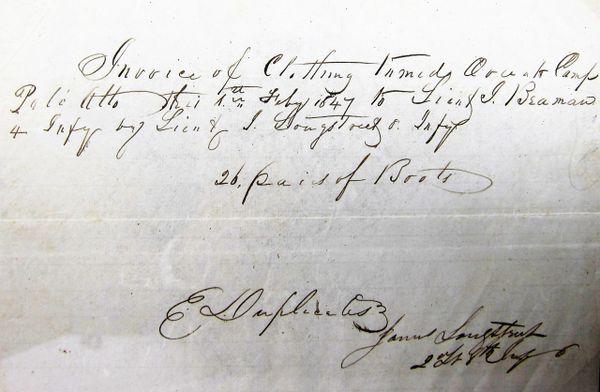 Invoice of Clothing turned Over at Camp
Palo Alto this 1st Feby 1847 to Lieut J. Beaman
4 Infy by Lieut J. Longstreet 8. Infy
26, pairs of Boots
Duplicates
James Longstreet
2 Lt 8th Infy